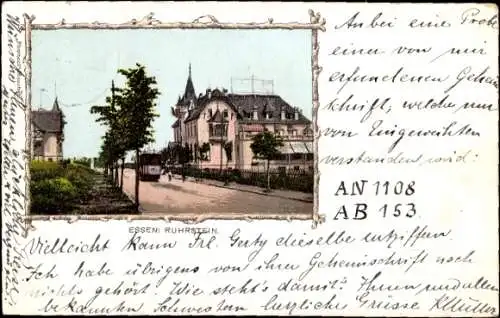 Anbei eine Probe
einer von mir
erfundenen Geheim
schrift, welche nur
von Eingeweihten
verstanden wird:
AN 1108
AB 153.
ESSEN: RUHRSTEIN.
Vielleicht kann Frl. Gerty dieselbe entziffern.
Ich habe übrigens von ihrer Geheimschrift noch
nichts gehört. Wie steht's damit? Ihnen und allen
bekannten Schwestern herzliche Grüsse